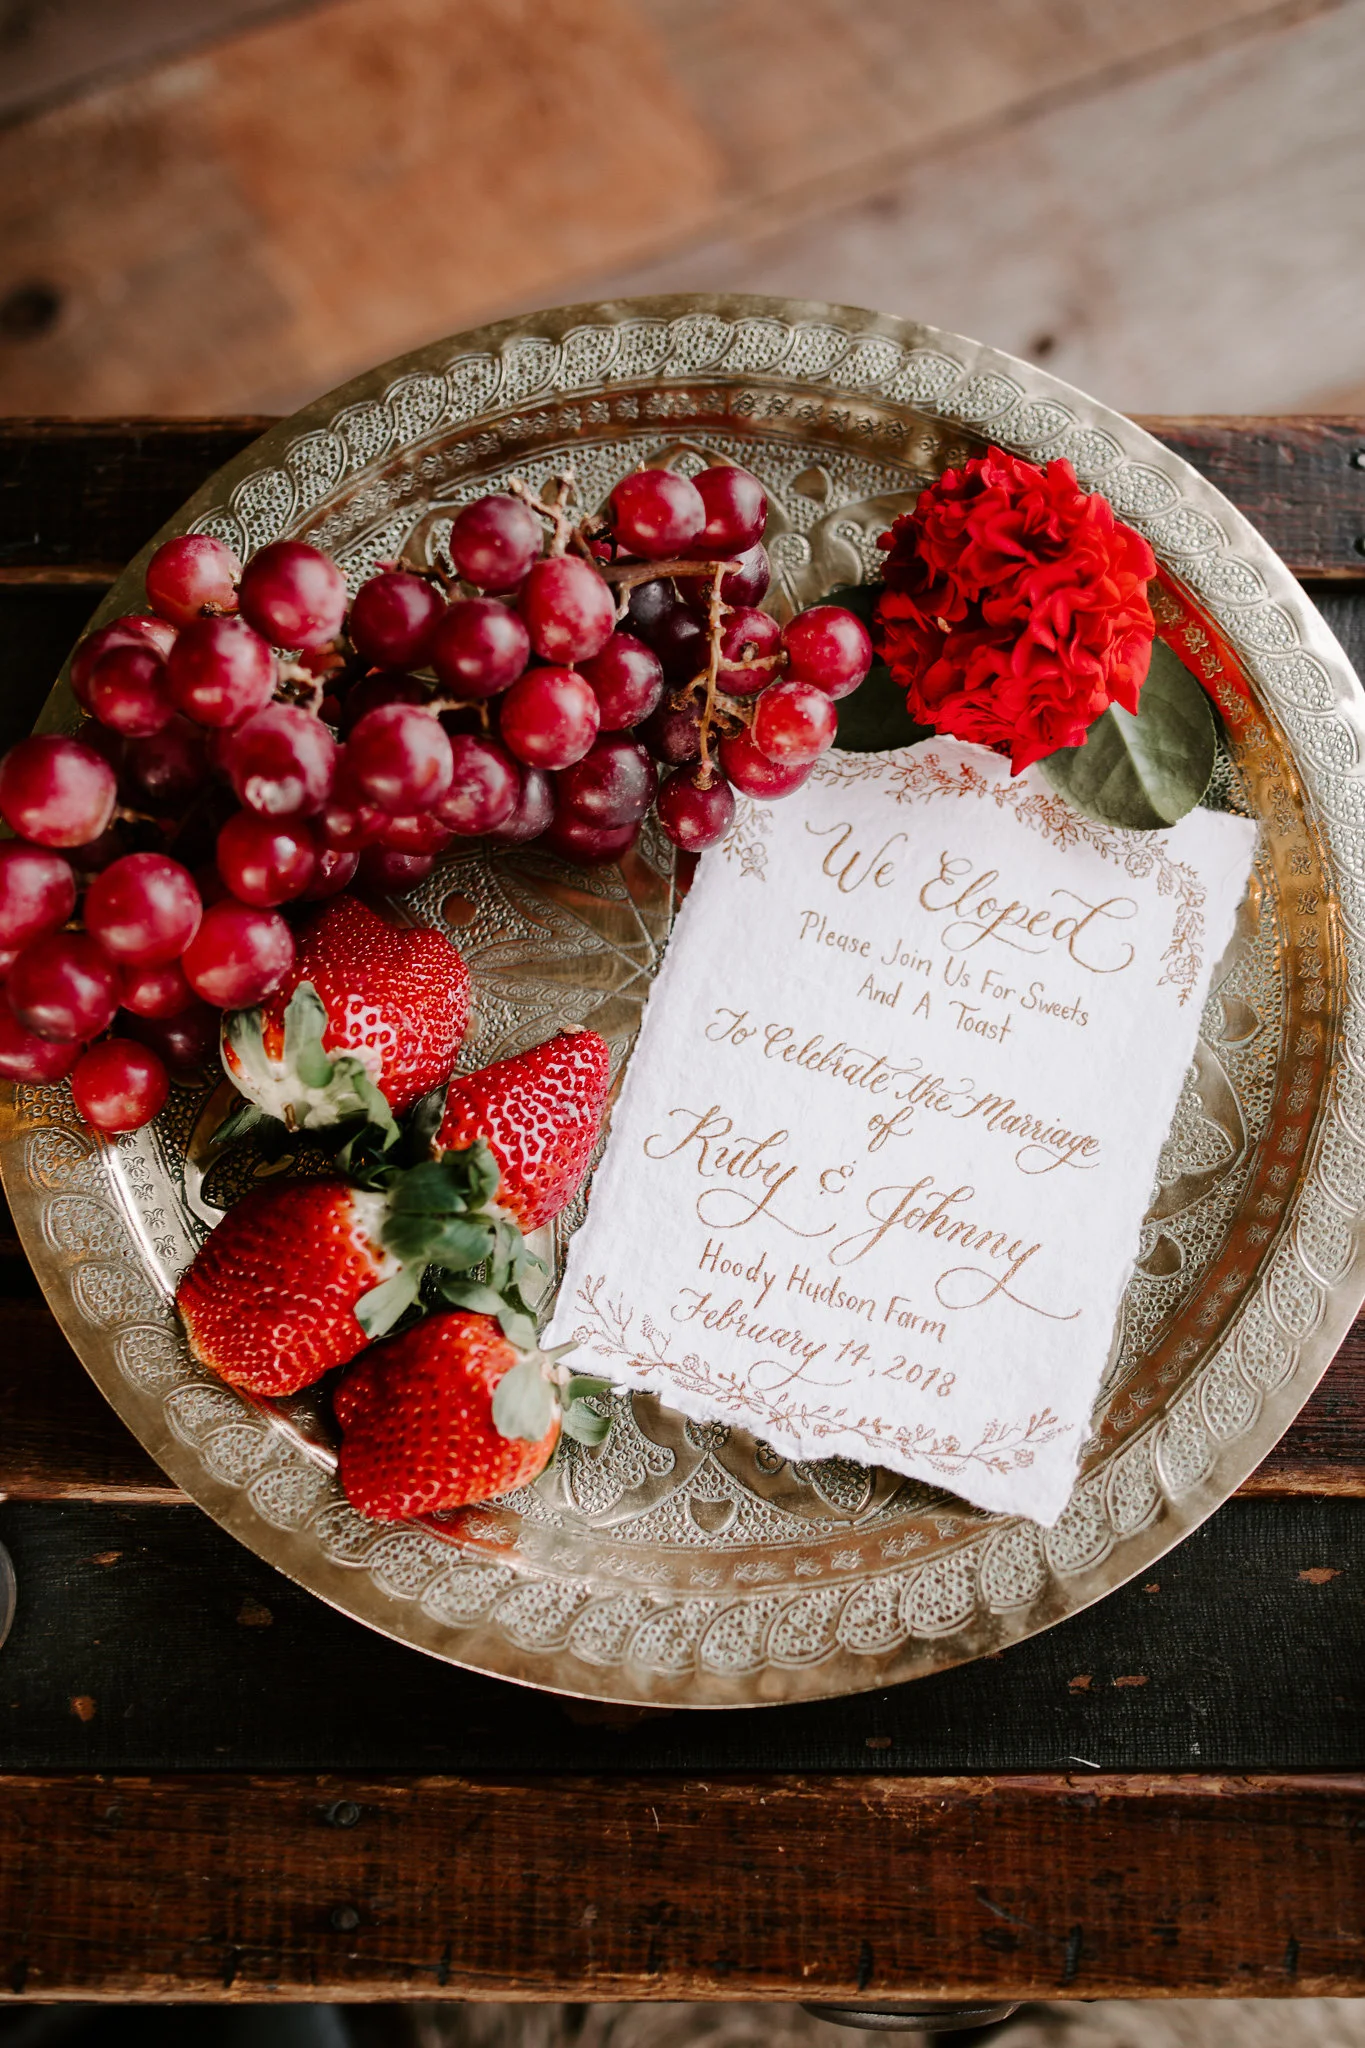 We Eloped
Please Join Us For Sweets
And A Toast
To Celebrate the Marriage
of
Ruby & Johnny
Hoody Hudson Farm
February 14, 2018